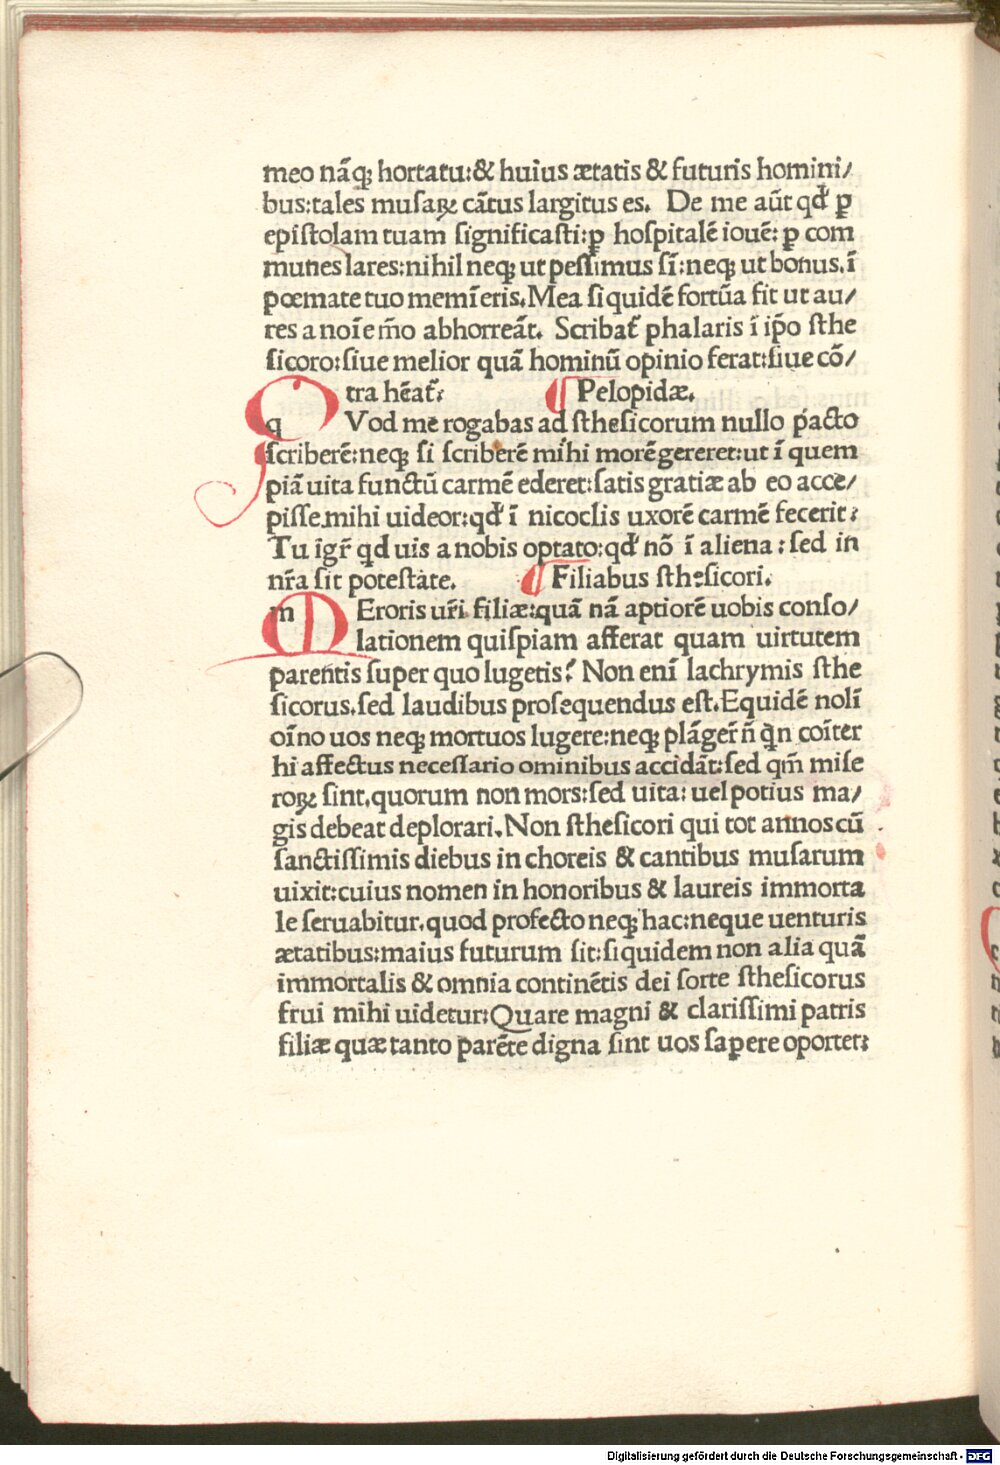 meo nãq; hortatu:& huius ætatis & futuris homini/
bus:tales musaꝝ cãtus largitus es. De me aũt qđ ꝑ
epiſtolam tuam ſignificaſti:ꝑ hoſpitalẽ iouẽ: ꝑ com
munes lares:nihil neq; ut peſſimus ſĩ:neq; ut bonus.ĩ
pœmate tuo memĩeris.Mea ſiquidẽ fortũa fit ut au/
res a noĩe m̃o abhorreãt. Scribat᷑ phalaris ĩ ip̃o ſthe
ſicoro:ſiue melior quã hominũ opinio ferat:ſiue cõ/
tra hẽat᷑: Pelopidæ.
q Vod me rogabas ad ſtheſicorum nullo pacto
ſcriberẽ:neq; ſi ſcriberẽ mihi morẽ gereret:ut ĩ quem
piã uita functũ carmẽ ederet:ſatis gratiæ ab eo acce/
piſſe mihi uideor:qđ ĩ nicoclis uxorẽ carmẽ fecerit:
Tu igr̃ qđ uis a nobis optato:qđ nõ ĩ aliena : ſed in
nr̃a ſit poteſtate. Filiabus ſtheſicori.
m Eroris ur̃i filiæ:quã nã aptiorẽ uobis conſo/
lationem quiſpiam afferat quam uirtutem
parentis ſuper quo lugetis? Non enĩ lachrymis ſthe
ſicorus.ſed laudibus proſequendus eſt.Equidẽ nolĩ
oĩno uos neq; mortuos lugere:neq; plãger̃ ñ q̃n coĩter
hi affectus neceſſario ominibus accidãt:ſed qm̃ miſe
roꝝ ſint.quorum non mors:ſed uita: uel potius ma/
gis debeat deplorari.Non ſtheſicori qui tot annos cũ
ſanctiſſimis diebus in choreis & cantibus muſarum
uixit:cuius nomen in honoribus & laureis immorta
le ſeruabitur.quod profecto neq; hac:neque uenturis
ætatibus:maius futurum ſit:ſiquidem non alia quã
immortalis & omnia continẽtis dei ſorte ſtheſicorus
frui mihi uidetur:Quare magni & clariſſimi patris
filiæ quæ tanto parẽte digna ſint uos ſapere oportet:
Digitalisierung gefördert durch die Deutsche Forschungsgemeinschaft - DFG